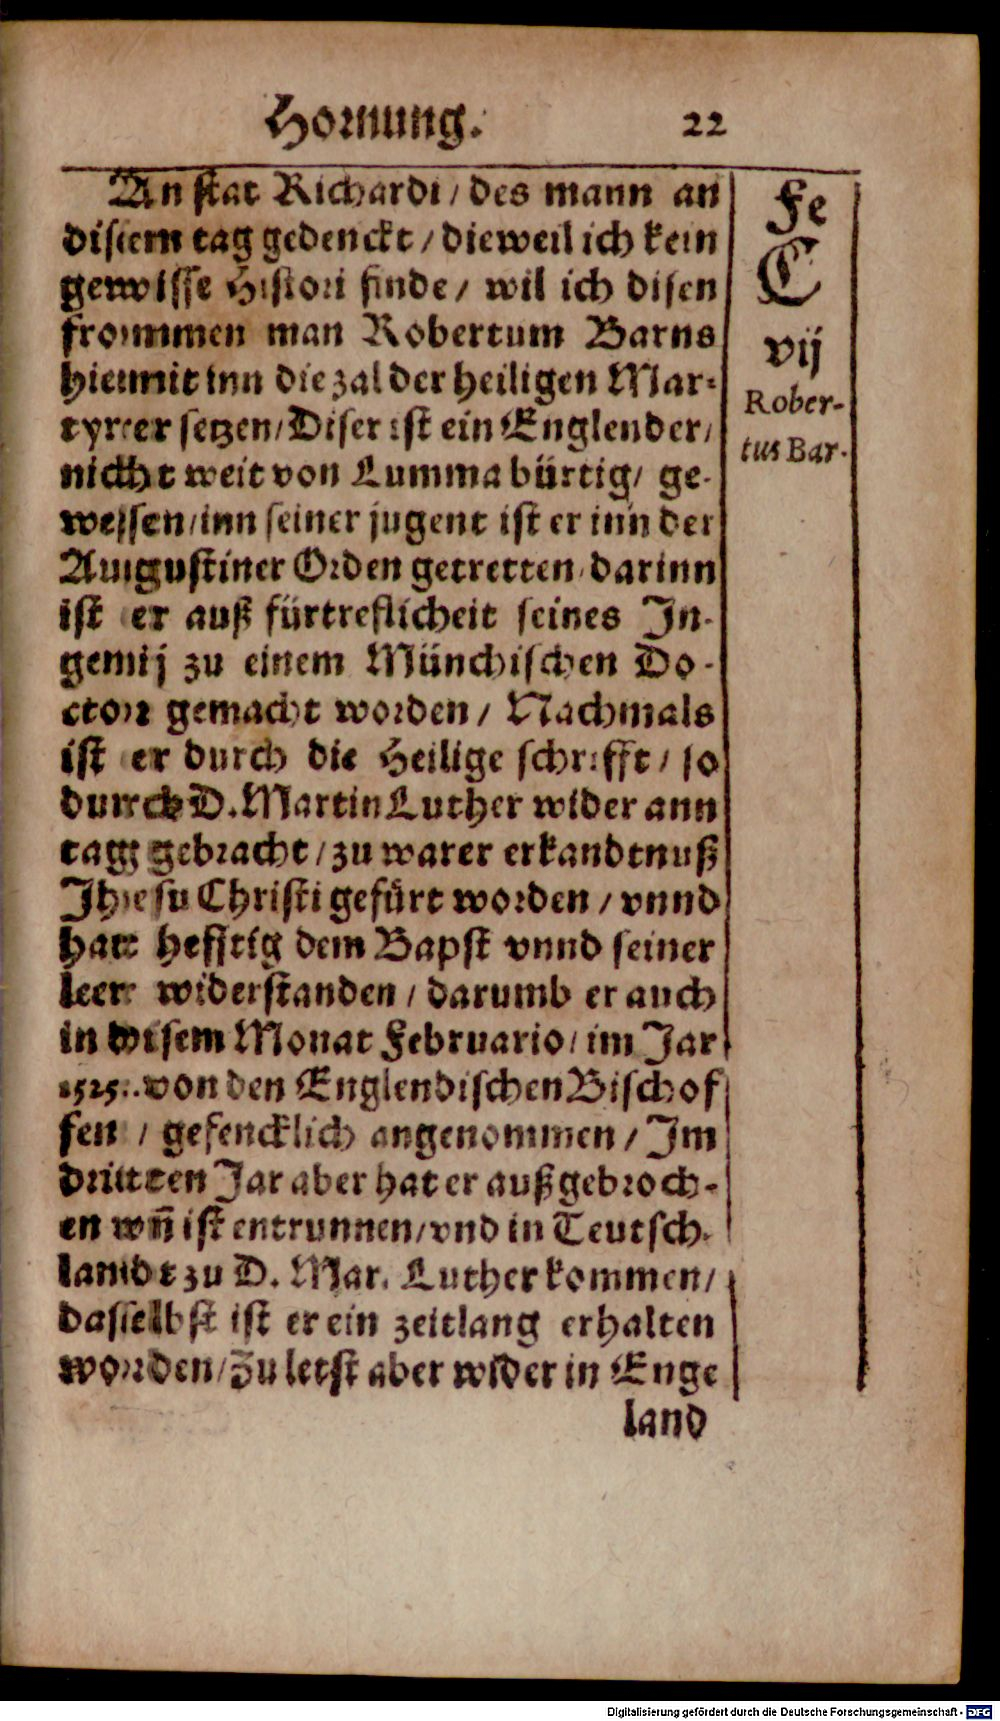 Hornung. 22
An stat Richardi / des mann an
disem tag gedenckt / dieweil ich kein
gewisse Histori finde / wil ich disen
frommen man Robertum Barns
hiemit inn die zal der heiligen Mar-
tyrer setzen / Diser ist ein Englender /
nicht weit von Lumma bürtig / ge-
wesen / inn seiner jugent ist er inn der
Augustiner Orden getretten / darinn
ist er auß fürtreflicheit seines In-
genij zu einem Münchischen Do-
ctor gemacht worden / Nachmals
ist er durch die Heilige schrifft / so
durch D. Martin Luther wider ann
tag gebracht / zu warer erkandtnuß
Jhesu Christi gefürt worden / vnnd
hatt hefftig dem Bapst vnnd seiner
leer widerstanden / darumb er auch
in disem Monat Februario / im Jar
1525. von den Englendischen Bischof
fen / gefencklich angenommen / Im
dritten Jar aber hat er außgebroch-
en vn̄ ist entrunnen / vnd in Teutsch-
landt zu D. Mar. Luther kommen /
daselbst ist er ein zeitlang erhalten
worden / Zu letst aber wider in Enge
land
Fe
C
vij
Rober-
tus Bar-
Digitalisierung gefördert durch die Deutsche Forschungsgemeinschaft - DFG